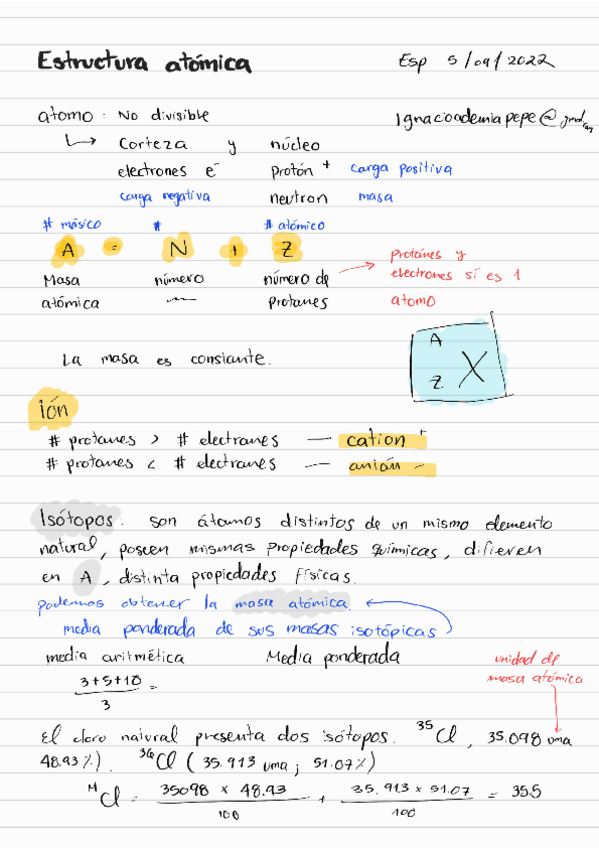 Estructura atómica Esp 5/09/2022
atomo: No divisible Ignacioademiapepe@
Corteza y núcleo
electrones e⁻ protón + carga positiva
carga negativa neutron masa
# másico # # atómico
A = N + Z
protones y
Masa número número de electrones sí es 1
atómica protones atomo
A
La masa es constante.
Z X
ión
# protones > # electrones — cation +
# protones < # electrones — anión -
Isótopos: son átomos distintos de un mismo elemento
natural, poseen mismas propiedades químicas, difieren
en A, distinta propiedades físicas.
podemos obtener la masa atómica.
media ponderada de sus masas isotópicas
media aritmética Media ponderada unidad de
3+5+10 = masa atómica
3
El cloro natural presenta dos isótopos. ³⁵Cl, 35.098 uma
48.93%). ³⁶Cl (35.913 uma; 51.07%)
ᴹCl = 35098 x 48.93 + 35.913 x 51.07 = 35.5
100 100